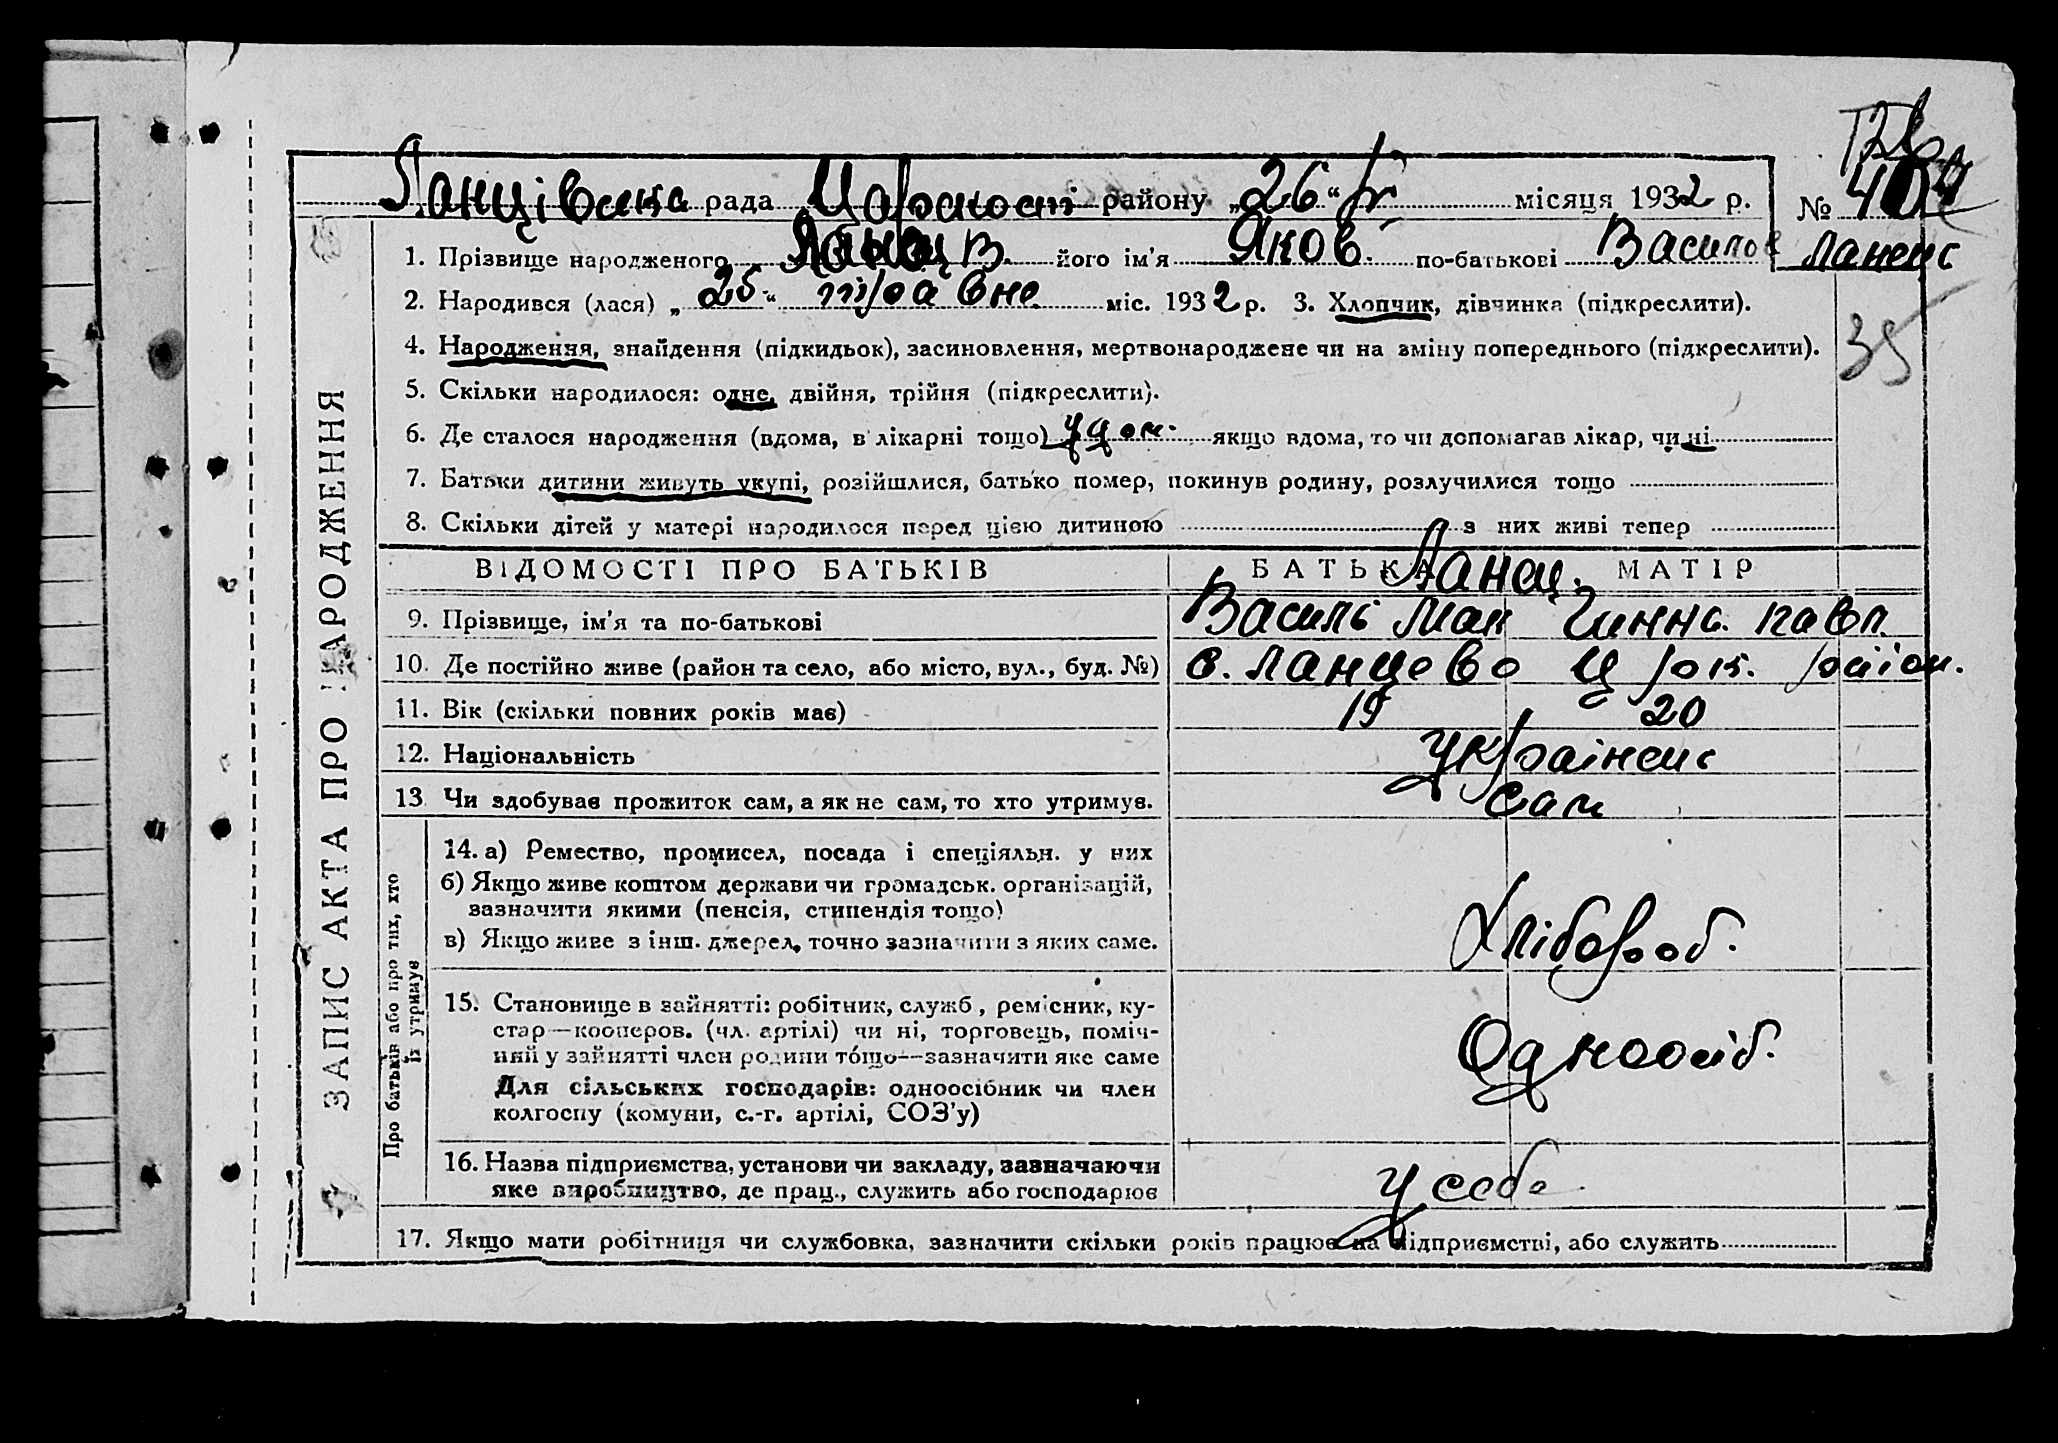 Ланцівська рада района „26“ V місяця 1932 р. № 40
1. Прізвище народженого Ланец В. його ім'я Яков. по-батькові Василов
2. Народився (лася) „25“ травня міс. 1932 р. 3. Хлопчик, дівчинка (підкреслити).
4. Народження, знайдення (підкидьок), засиновлення, мертвонароджене чи на зміну попереднього (підкреслити).
35
5. Скільки народилося: одне, двійня, трійня (підкреслити).
6. Де сталося народження (вдома, в лікарні тощо) удом. якщо вдома, то чи допомагав лікар, чи ні
7. Батьки дитини живуть укупі, розійшлися, батько помер, покинув родину, розлучилися тощо
8. Скільки дітей у матері народилося перед цією дитиною з них живі тепер
ЗАПИС АКТА ПРО НАРОДЖЕННЯ
ВІДОМОСТІ ПРО БАТЬКІВ БАТЬКА МАТІР
Ланец.
9. Прізвище, ім'я та по-батькові Василь Мак Ганна. павл.
10. Де постійно живе (район та село, або місто, вул., буд. №) с. Ланцево Ц рок. район.
11. Вік (скільки повних років має) 19 20
12. Національність українець
13 Чи здобуває прожиток сам, а як не сам, то хто утримув. сам
Про батьків або про тих, хто їх утримує
14. а) Ремество, промисел, посада і спеціяльн. у них
б) Якщо живе коштом держави чи громадськ. організацій,
зазначити якими (пенсія, стипендія тощо)
в) Якщо живе з інш. джерел, точно зазначити з яких саме.
Хлібороб.
15. Становище в зайнятті: робітник, служб, ремісник, ку-
стар—кооперов. (чл. артілі) чи ні, торговець, поміч-
ний у зайнятті член родини тощо—зазначити яке саме
Для сільських господарів: одноосібник чи член
колгоспу (комуни, с.-г. артілі, СОЗ'у)
Одноосіб.
16. Назва підприємства, установи чи закладу, зазначаючи
яке виробництво, де прац., служить або господарює
у себе
17. Якщо мати робітниця чи службовка, зазначити скільки років працює на підприємстві, або служить